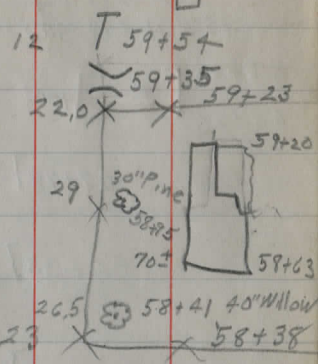 12 T 59+54
59+35
22,0 59+23
59+20
29 30" Pine
58+95
70± 59+63
26,5 58+41 40" Willow
23 58+38